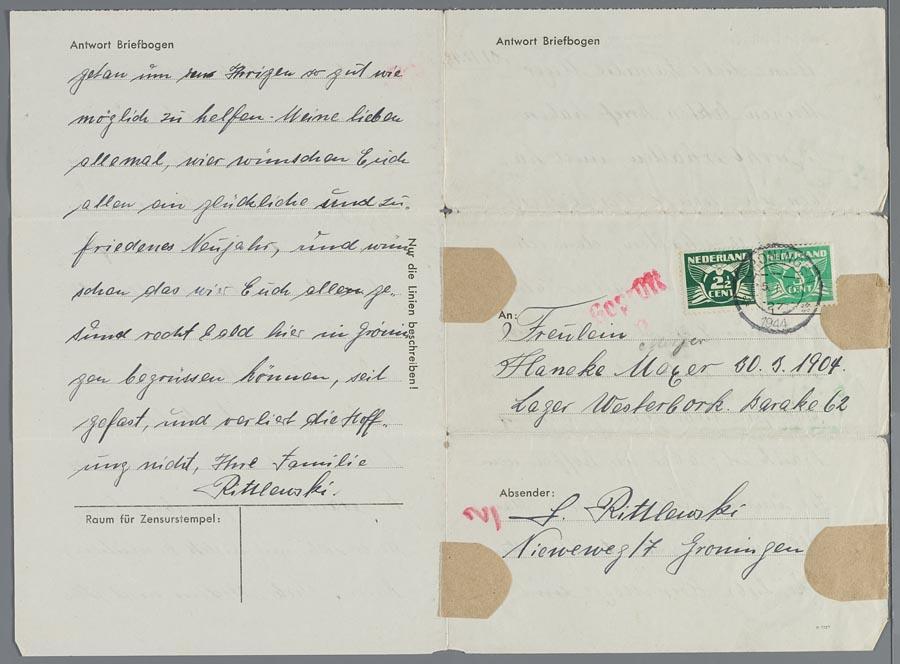 Antwort Briefbogen
getan um den Ihrigen so gut wie
möglich zu helfen. Meine lieben
allemal, wier wünschen Euch
allen ein glückliche und zu-
friedenes Neujahr, und wün
schen das wier Euch allen ge-
sund recht bald hier in Grönin
gen begrüssen können, seit
gefast, und verliert die Hoff-
ung nicht, Ihre Familie
Rittlewski.
Nur die Linien beschreiben!
Raum für Zensurstempel:
Antwort Briefbogen
NEDERLAND
2½
CENT
NEDERLAND
CENT
1944
An:
Freulein
Meijer
Haneke Mayer 30. 3. 1904.
Lager Westerbork. Barake 62
Absender:
S. Rittlewski
Nieweweg 17 Groningen